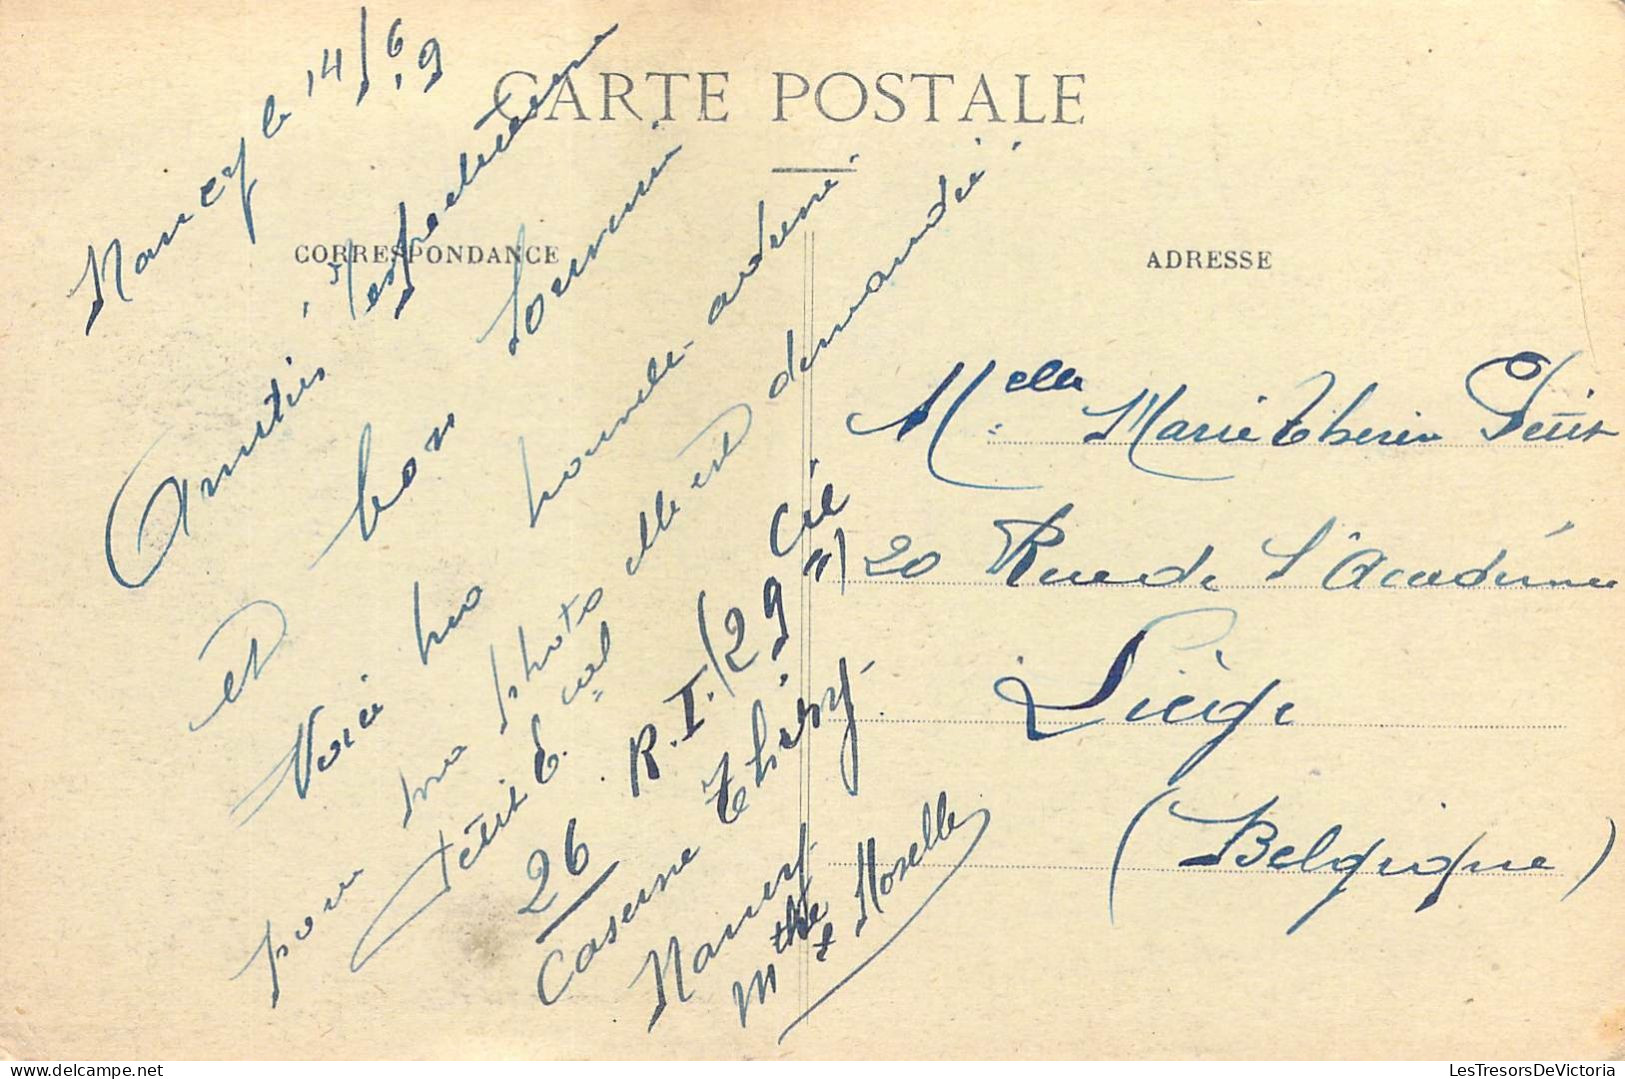 CARTE POSTALE
CORRESPONDANCE
ADRESSE
Nancy le 14/6 19
Amitiés respectueuse
et bon souvenir
Voici ma nouvelle adresse
pour ma photo elle est demandée.
Petit E. cal
26 R.I./29 Cie
Caserne Thiry
Nancy
Mthe et Moselle
Melle Marie Therèse Petit
20 Rue de l'Académie
Liège
(Belgique)
LesTresorsDeVictoria